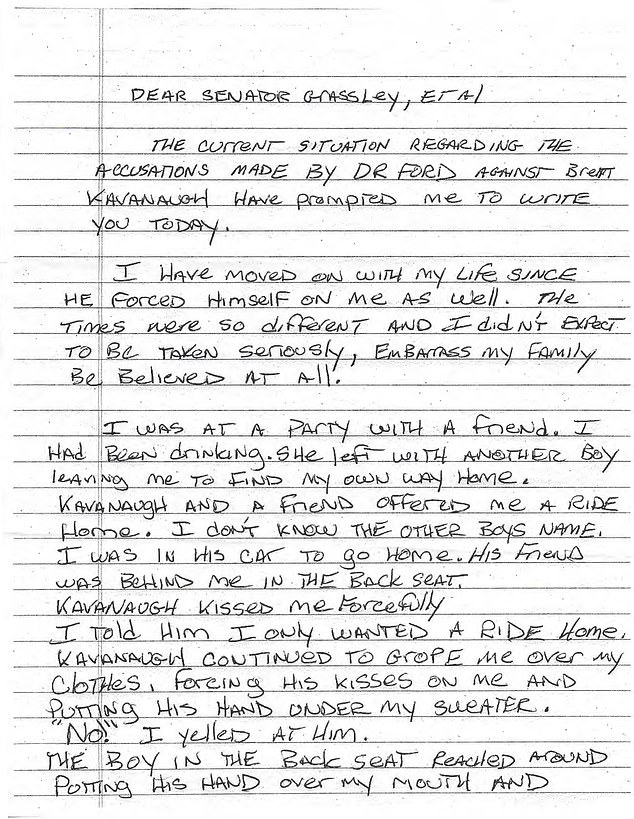 DEAR SENATOR GRASSLEY, ET Al
THE CURRENT SITUATION REGARDING THE
ACCUSATIONS MADE BY DR FORD AGAINST Brett
KAVANAUGH HAVE prompted me TO WRITE
YOU TODAY.
I HAVE MOVED ON WITH MY LIFE SINCE
HE FORCED HIMSELF ON ME AS Well. THE
TIMES WERE SO different AND I didN'T EXPECT
TO BE TAKEN SERIOUSLY, EMBARRASS MY FAMILY
BE Believed AT All.
I WAS AT A PARTY WITH A friend. I
HAD BEEN drinking. SHE left WITH ANOTHER BOY
leaving me TO FIND MY OWN WAY Home.
KAVANAUGH AND A friend OFFERED me A RIDE
Home. I DON'T KNOW THE OTHER BOYS NAME.
I WAS IN HIS CAR TO go HOME. HIS Friend
WAS BEHIND me IN THE BACK SEAT.
KAVANAUGH KISSED me Forcefully
I TOLD HIM I ONLY WANTED A RIDE Home.
KAVANAUGH CONTINUED TO GROPE me OVER my
CLOTHES, FORCING HIS KISSES ON ME AND
PUTTING HIS HAND UNDER MY SWEATER.
"NO!" I yelled AT HIM.
THE BOY IN THE BACK SEAT REACHED AROUND
PUTTING HIS HAND over my MOUTH AND